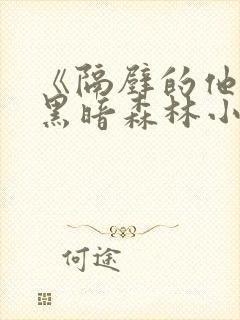 《隔壁的他
黑暗森林小
何途